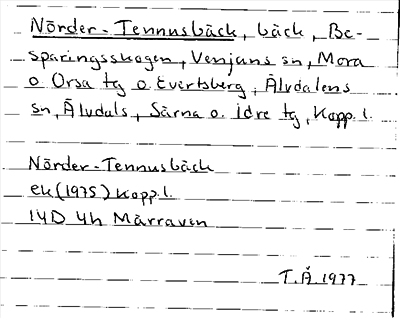 Nörder-Tennusbäck, bäck, Be-
sparingsskogen, Venjans sn, Mora
o Orsa tg o. Evertsberg, Älvdalens
sn, Älvdals, Särna o. Idre tg, Kopp. l.
Nörder-Tennusbäck
ek (1975) Kopp. l.
14D 4h Märraven
T.Å. 1977